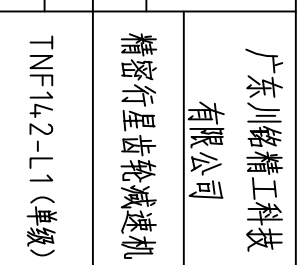 广东川铭精工科技
有限公司
精密行星齿轮减速机
TNF142-L1(单级)